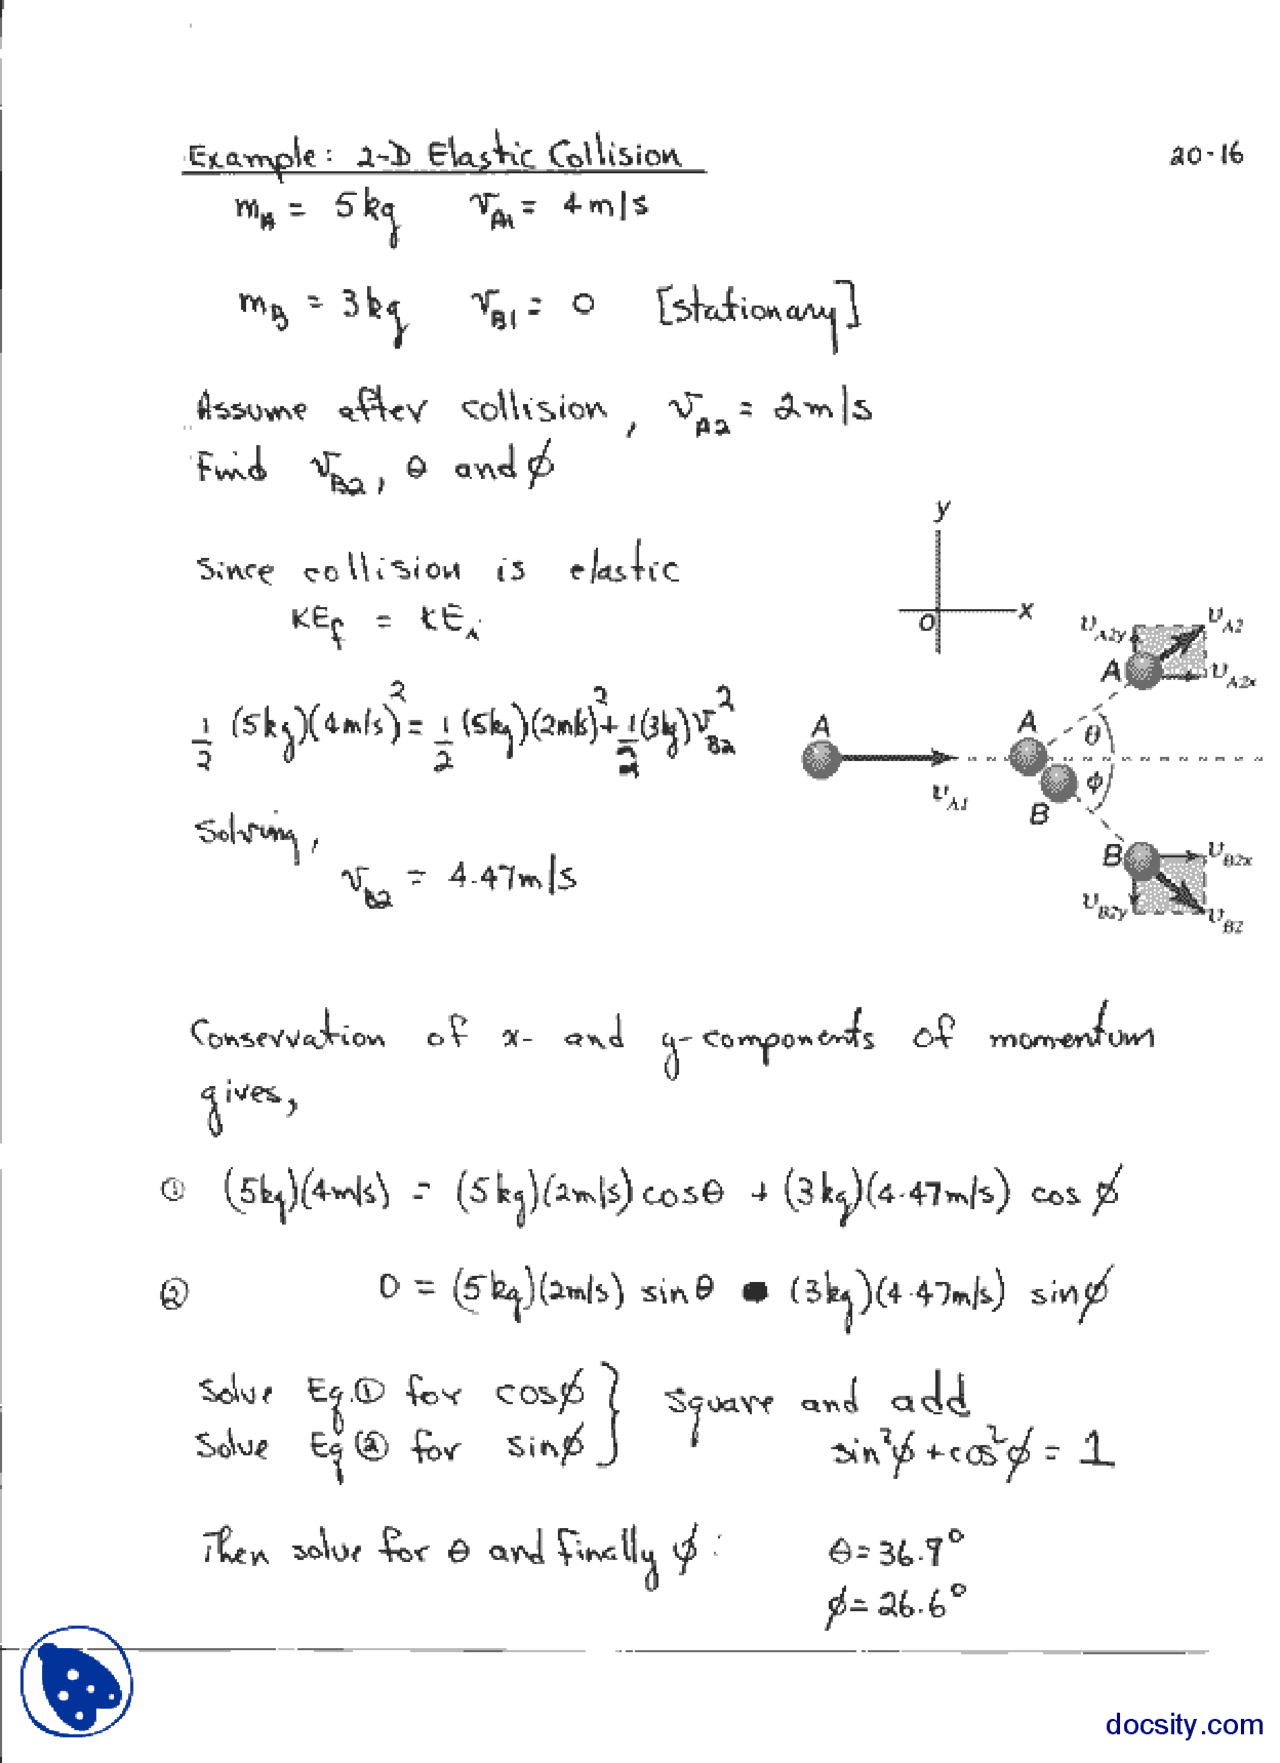 Example: 2-D Elastic Collision
20-16
m_A = 5kg v_A1 = 4m/s
m_B = 3kg v_B1 = 0 [stationary]
Assume after collision, v_A2 = 2m/s
Find v_B2, θ and φ
Since collision is elastic
KE_f = KE_i
1/2 (5kg)(4m/s)² = 1/2 (5kg)(2m/s)² + 1/2 (3kg) v_B2²
Solving,
v_B2 = 4.47m/s
y
x
O
A
v_A1
A
B
θ
φ
A
v_A2y
v_A2
v_A2x
B
v_B2x
v_B2y
v_B2
Conservation of x- and y-components of momentum
gives,
① (5kg)(4m/s) = (5kg)(2m/s) cosθ + (3kg)(4.47m/s) cos φ
② 0 = (5kg)(2m/s) sinθ - (3kg)(4.47m/s) sinφ
Solve Eq.① for cosφ } square and add
Solve Eq ② for sinφ } sin²φ + cos²φ = 1
Then solve for θ and finally φ: θ = 36.9°
φ = 26.6°
docsity.com